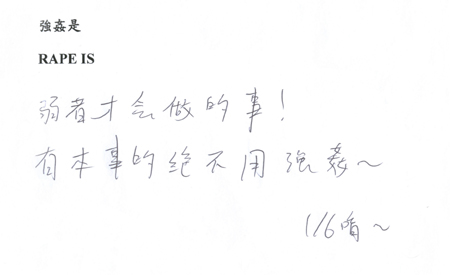 強姦是
RAPE IS
弱者才会做的事！
有本事的绝不用強姦～
1/6